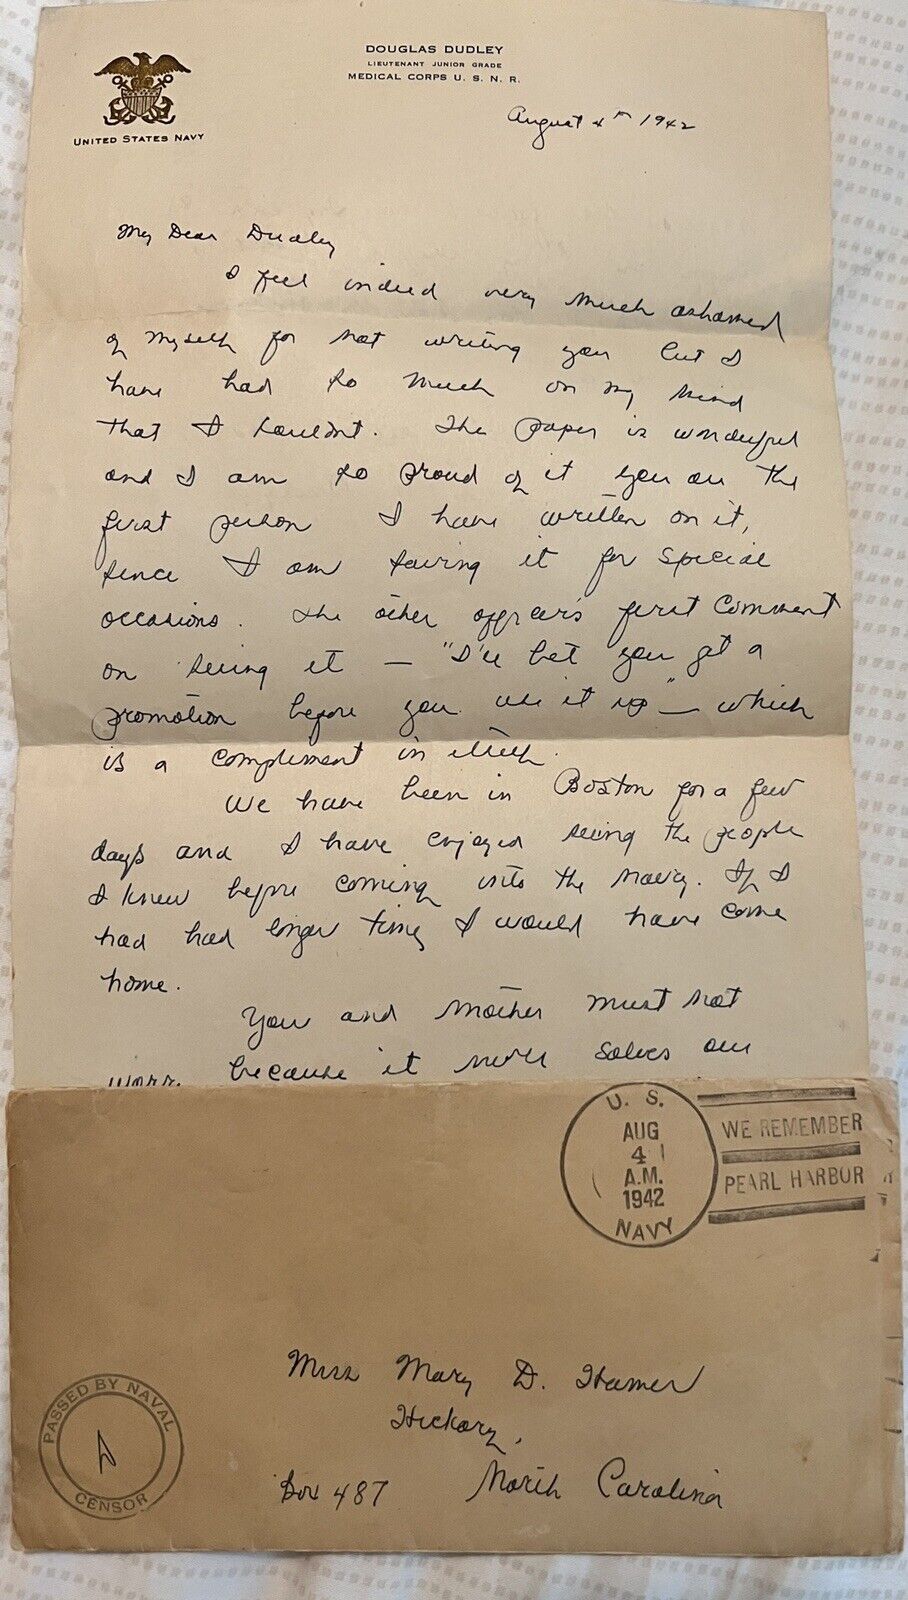 DOUGLAS DUDLEY
LIEUTENANT JUNIOR GRADE
MEDICAL CORPS U. S. N. R.
UNITED STATES NAVY
August 4th 1942
My Dear Dudley
I feel indeed very much ashamed
of myself for not writing you but I
have had so much on my mind
that I couldn't. The paper is wonderful
and I am so proud of it you are the
first person I have written on it,
since I am saving it for special
occasions. The other officers first comment
on seeing it — "I'll bet you get a
promotion before you use it up" — which
is a compliment in itself.
We have been in Boston for a few
days and I have enjoyed seeing the people
I knew before coming into the navy. If I
had had longer time, I would have come
home.
You and Mother must not
worry because it never solves our
U. S.
AUG
4
A.M.
1942
NAVY
WE REMEMBER
PEARL HARBOR
Miss Mary D. Hamer
Hickory,
Box 487 North Carolina
PASSED BY NAVAL
CENSOR